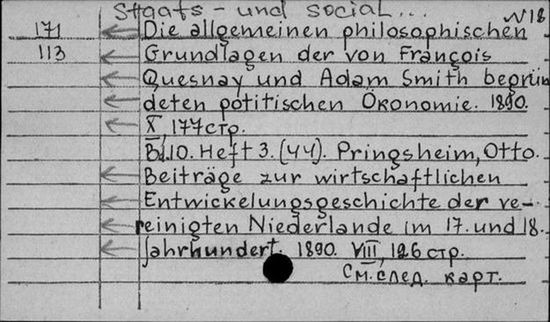 Staats- und social...
№18
171 Die allgemeinen philosophischen
113 Grundlagen der von François
Quesnay und Adam Smith begrün
deten potitischen Ökonomie. 1890.
X, 177 стр.
Bd.10. Heft 3. (44). Pringsheim, Otto.
Beiträge zur wirtschaftlichen
Entwickelungsgeschichte der ve-
reinigten Niederlande im 17. und 18.
Jahrhundert. 1890. VIII, 126 стр.
См. след. карт.